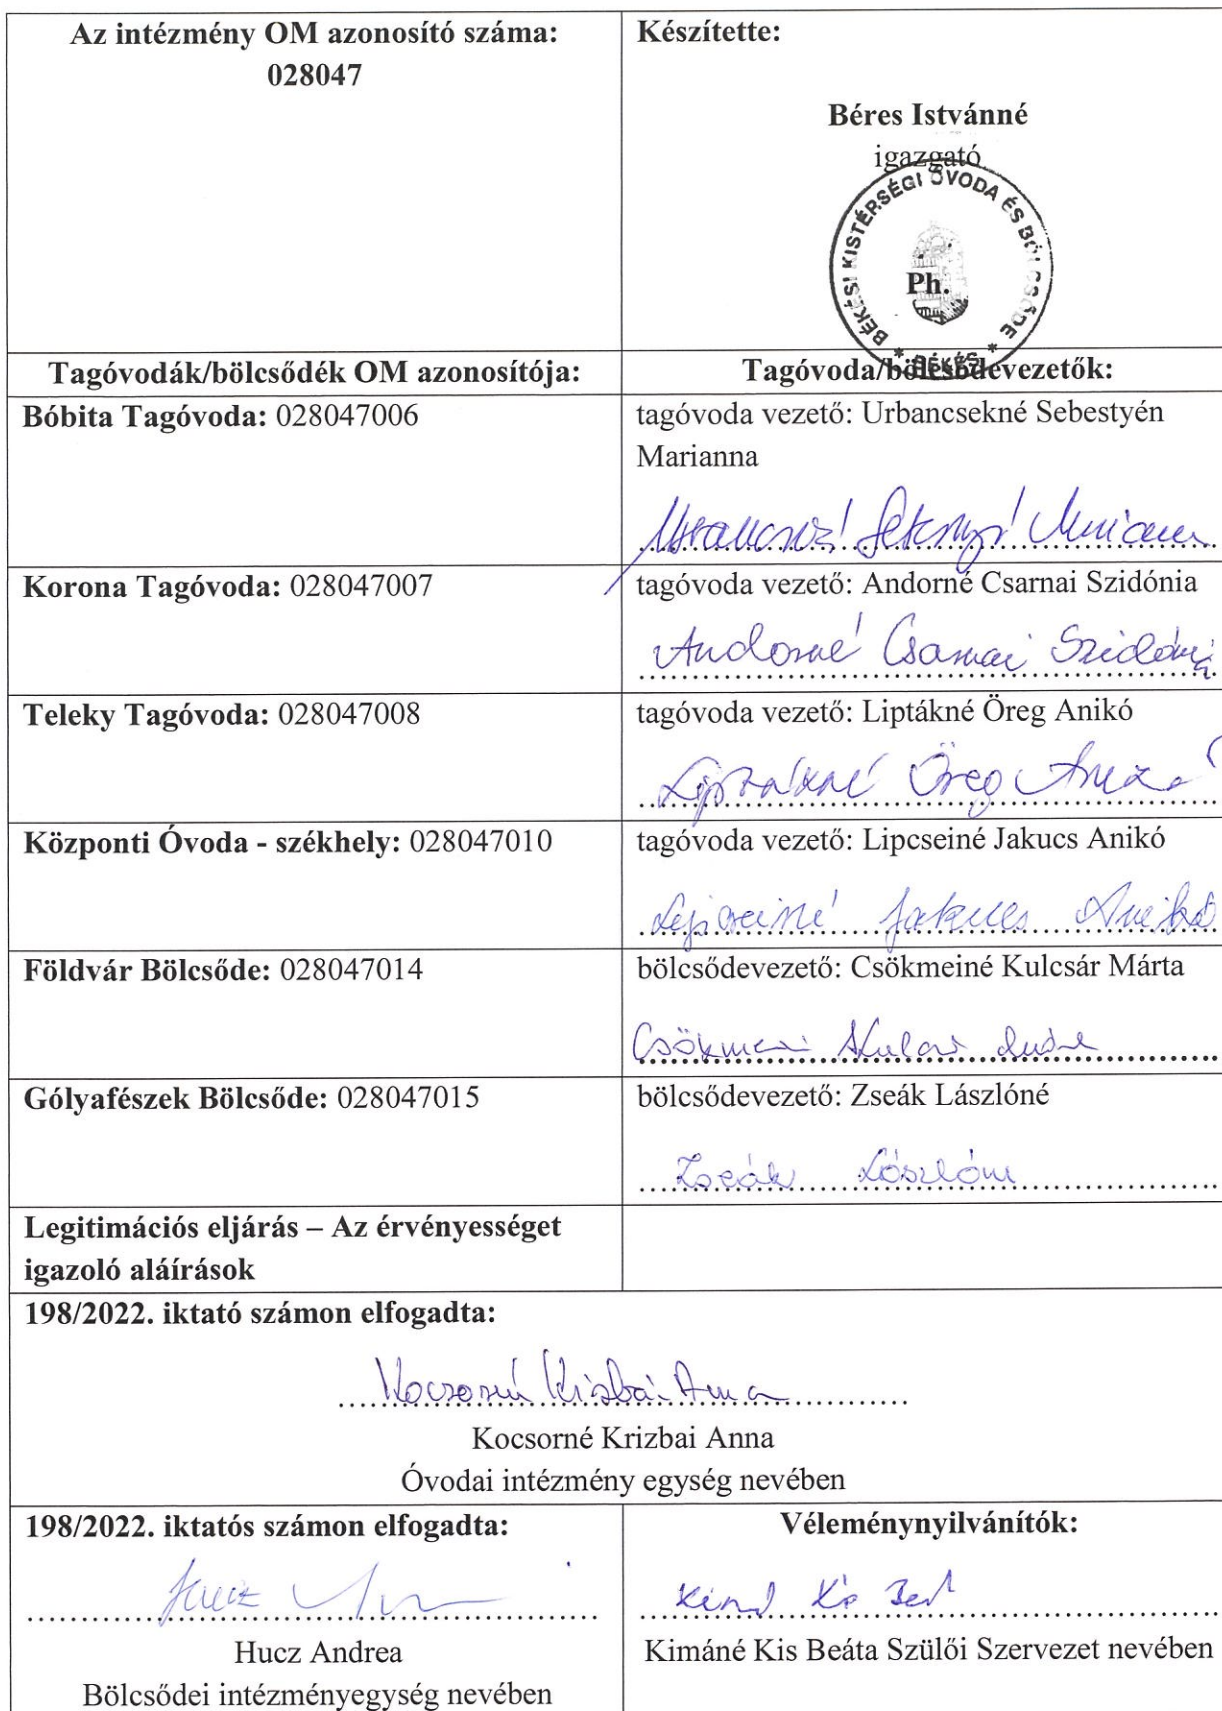 Az intézmény OM azonosító száma:
028047
Készítette:
Béres Istvánné
igazgató
BÉKÉSI KISTÉRSÉGI ÓVODA ÉS BÖLCSŐDE
* BÉKÉS *
Ph.
Tagóvodák/bölcsődék OM azonosítója:
Tagóvoda/bölcsődevezetők:
Bóbita Tagóvoda: 028047006
tagóvoda vezető: Urbancsekné Sebestyén
Marianna
Korona Tagóvoda: 028047007
tagóvoda vezető: Andorné Csarnai Szidónia
Andorné Csarnai Szidónia
Teleky Tagóvoda: 028047008
tagóvoda vezető: Liptákné Öreg Anikó
Liptákné Öreg Anikó
Központi Óvoda - székhely: 028047010
tagóvoda vezető: Lipcseiné Jakucs Anikó
Lipcseiné Jakucs Anikó
Földvár Bölcsőde: 028047014
bölcsődevezető: Csökmeiné Kulcsár Márta
Gólyafészek Bölcsőde: 028047015
bölcsődevezető: Zseák Lászlóné
Zseák Lászlóné
Legitimációs eljárás – Az érvényességet
igazoló aláírások
198/2022. iktató számon elfogadta:
Kocsorné Krizbai Anna
Kocsorné Krizbai Anna
Óvodai intézmény egység nevében
198/2022. iktatós számon elfogadta:
Hucz
Hucz Andrea
Bölcsődei intézményegység nevében
Véleménynyilvánítók:
Kimáné Kis Beáta Szülői Szervezet nevében